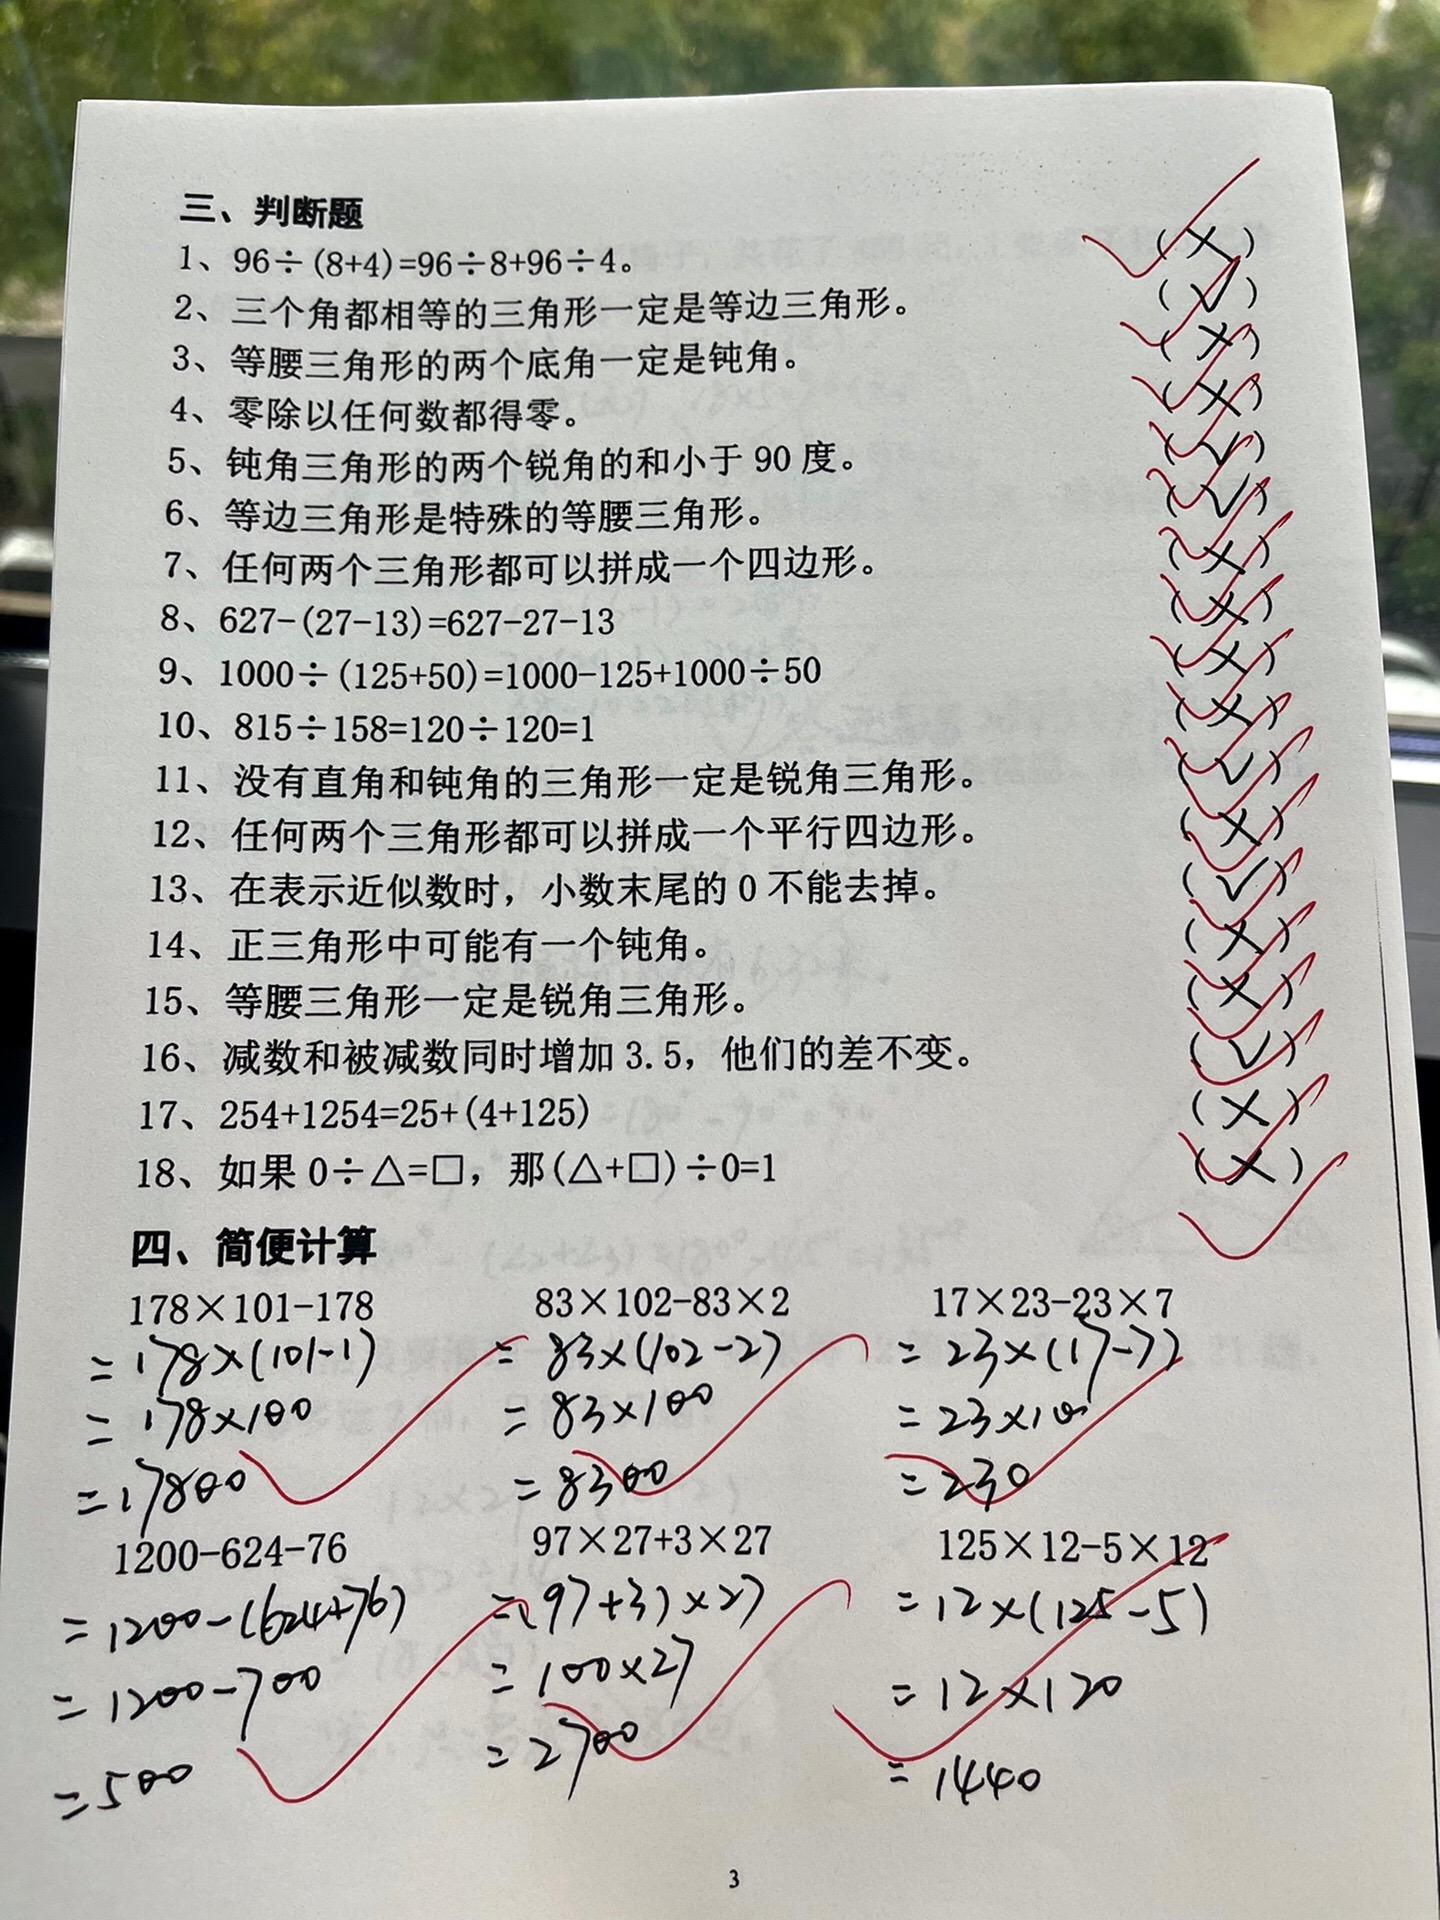 三、判断题
1、96÷(8+4)=96÷8+96÷4。 (×)
2、三个角都相等的三角形一定是等边三角形。 (√)
3、等腰三角形的两个底角一定是钝角。 (×)
4、零除以任何数都得零。 (×)
5、钝角三角形的两个锐角的和小于 90 度。 (√)
6、等边三角形是特殊的等腰三角形。 (√)
7、任何两个三角形都可以拼成一个四边形。 (×)
8、627-(27-13)=627-27-13 (×)
9、1000÷(125+50)=1000-125+1000÷50 (×)
10、815÷158=120÷120=1 (×)
11、没有直角和钝角的三角形一定是锐角三角形。 (√)
12、任何两个三角形都可以拼成一个平行四边形。 (×)
13、在表示近似数时，小数末尾的 0 不能去掉。 (√)
14、正三角形中可能有一个钝角。 (×)
15、等腰三角形一定是锐角三角形。 (×)
16、减数和被减数同时增加 3.5，他们的差不变。 (√)
17、254+1254=25+(4+125) (×)
18、如果 0÷△=□，那(△+□)÷0=1 (×)
四、简便计算
178×101-178 83×102-83×2 17×23-23×7
=178×(101-1) = 83×(102-2) = 23×(17-7)
= 178×100 = 83×100 = 23×10
=17800 = 8300 = 230
1200-624-76 97×27+3×27 125×12-5×12
=1200-(624+76) =(97+3)×27 = 12×(125-5)
= 1200-700 = 100×27 = 12×120
=500 = 2700 = 1440
3